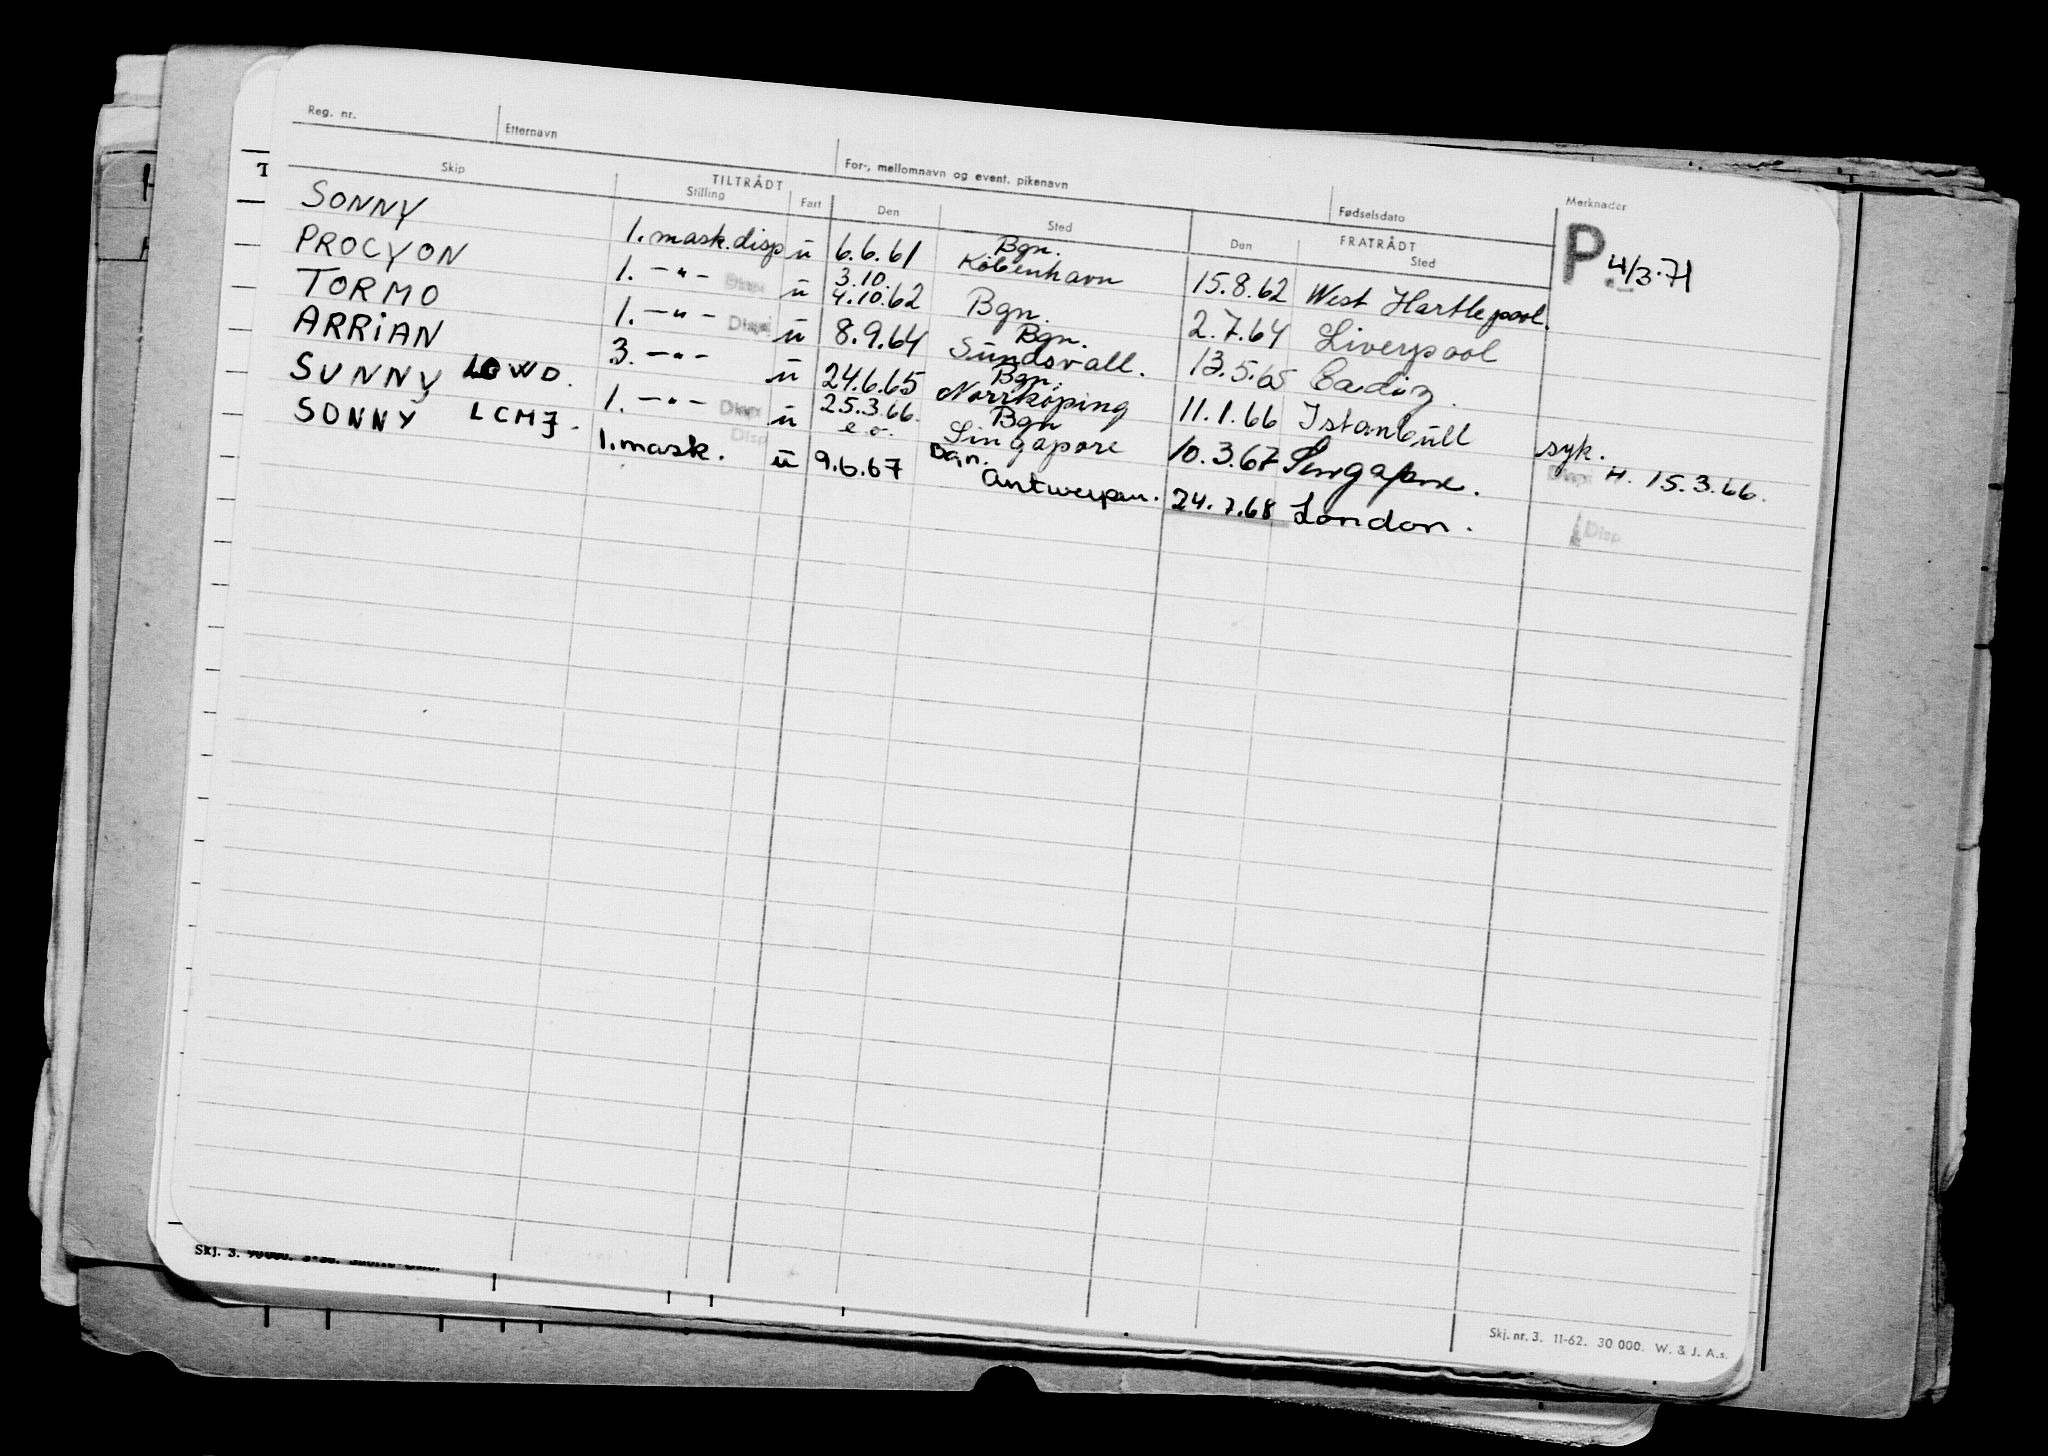 Reg. nr. Etternavn For-, mellomnavn og event. pikenavn Fødselsdato Merknader
Skip TILTRÅDT FRATRÅDT
Stilling Fart Den Sted Den Sted
P. 4/3.71
SONNY 1. mask. disp u 6.6.61 Bgn. København 15.8.62 West Hartlepool.
PROCYON 1. -"- Disp u 3.10. 4.10.62 Bgn. 2.7.64 Liverpool
TORMO 1. -"- Disp. u 8.9.64 Bgn. Sundsvall. 13.5.65 Cadiz.
ARRIAN 3. -"- u 24.6.65 Bgn. Norrköping 11.1.66 Istanbull syk.
SUNNY LGWD. 1. -"- Disp u 25.3.66. e.o. Bgn Singapore 10.3.67 Singapore. Disp H. 15.3.66.
SONNY LCMJ. 1. mask. Disp u 9.6.67 Bgn. Antwerpen. 24.7.68 London. Disp
Skj. 3.
Skj. nr. 3. 11-62. 30 000. W. & J. A.s.